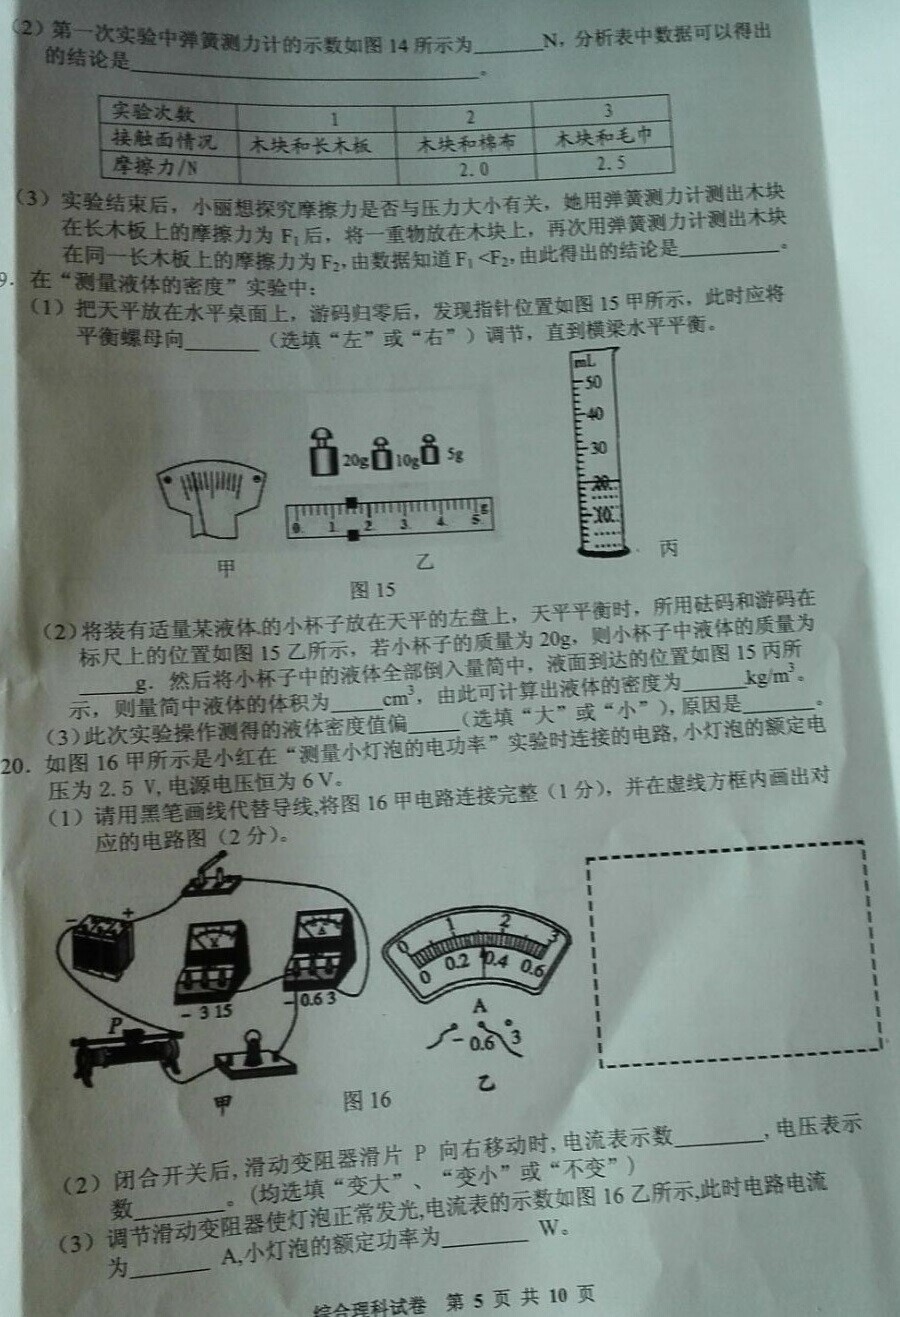 (2)第一次实验中弹簧测力计的示数如图14所示为______N，分析表中数据可以得出
的结论是______________________。
实验次数 1 2 3
接触面情况 木块和长木板 木块和棉布 木块和毛巾
摩擦力/N 2.0 2.5
(3)实验结束后，小丽想探究摩擦力是否与压力大小有关，她用弹簧测力计测出木块
在长木板上的摩擦力为F₁后，将一重物放在木块上，再次用弹簧测力计测出木块
在同一长木板上的摩擦力为F₂,由数据知道F₁<F₂,由此得出的结论是________。
9．在“测量液体的密度”实验中：
(1)把天平放在水平桌面上，游码归零后，发现指针位置如图15甲所示，此时应将
平衡螺母向______（选填“左”或“右”）调节，直到横梁水平平衡。
mL
50
40
30
20
10
20g 10g 5g
0 1 2 3 4 5 g
甲 乙 丙
图15
(2)将装有适量某液体的小杯子放在天平的左盘上，天平平衡时，所用砝码和游码在
标尺上的位置如图15乙所示，若小杯子的质量为20g，则小杯子中液体的质量为
_____g．然后将小杯子中的液体全部倒入量筒中，液面到达的位置如图15丙所
示，则量筒中液体的体积为_____cm³，由此可计算出液体的密度为______kg/m³。
(3)此次实验操作测得的液体密度值偏____（选填“大”或“小”），原因是______。
20．如图16甲所示是小红在“测量小灯泡的电功率”实验时连接的电路,小灯泡的额定电
压为2.5 V,电源电压恒为6V。
(1)请用黑笔画线代替导线,将图16甲电路连接完整（1分），并在虚线方框内画出对
应的电路图（2分）。
- +
V A
- 3 15
- 0.6 3
P
0 1 2 3
0 0.2 0.4 0.6
A
- 0.6 3
甲 图16 乙
(2)闭合开关后,滑动变阻器滑片 P 向右移动时,电流表示数________,电压表示
数________。(均选填“变大”、“变小”或“不变”)
(3)调节滑动变阻器使灯泡正常发光,电流表的示数如图16乙所示,此时电路电流
为_______A,小灯泡的额定功率为________W。
综合理科试卷 第 5 页 共 10 页